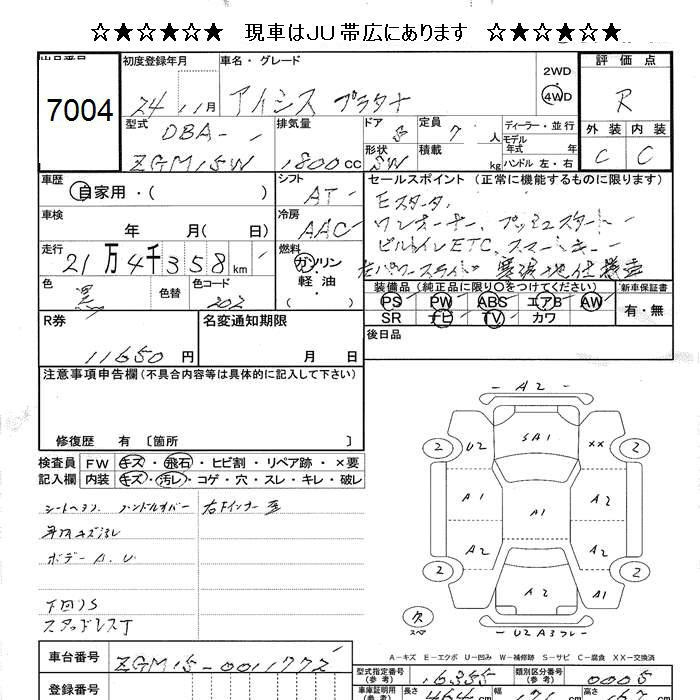 ☆★☆★☆★ 現車はJU帯広にあります ☆★☆★☆★
初度登録年月 車名・グレード 2WD 評価点
7004 24 11月 アイシス プラタナ 4WD R
型式 DBA- 排気量 ドア 5 定員 7人 ディーラー・並行 外装 内装
ZGM15W 1800cc 形状 SW 積載 kg モデル年式 年 ハンドル 左・右 C C
車歴 自家用・( ) シフト AT セールスポイント (正常に機能するものに限ります)
車検 年 月( 日) 冷房 AAC
ワンオーナー、プッシュスタート
ビルトインETC、スマートキー
走行 21万4千358km 燃料 ガソリン 軽油 ・( )
右パワースライド 寒冷地仕様車
色 黒 色替 色コード 202
装備品 (純正品に限り○をつけてください) 新車保証書
PS PW ABS エアB AW 有・無
SR ナビ TV カワ
R券 11650円 名変通知期限 月 日 後日品
注意事項申告欄(不具合内容等は具体的に記入して下さい)
修復歴 有 〔箇所 〕
検査員 FW キズ・飛石・ヒビ割・リペア跡・×要
記入欄 内装 キズ・汚レ・コゲ・穴・スレ・キレ・破レ
ハンドルカバー
ボデー A.U
下回りS
スタッドレスT
A2
2 U2 SA1 XX 2
A1 A1 A1
A2 A2
2 A2 A1 2
欠 スペア U2 A3
A-キズ E-エクボ U-凹み W-補修跡 S-サビ C-腐食 XX-交換済
車台番号 ZGM15-0011772
型式指定番号(参考) 16355 類別区分番号(参考) 0005
登録番号
長さ 464 cm 幅